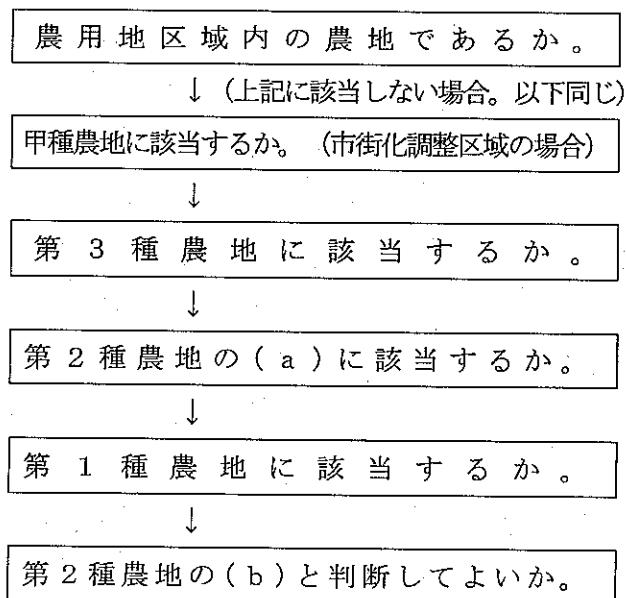 農用地区域内の農地であるか。
↓（上記に該当しない場合。以下同じ）
甲種農地に該当するか。（市街化調整区域の場合）
↓
第３種農地に該当するか。
↓
第２種農地の(a)に該当するか。
↓
第１種農地に該当するか。
↓
第２種農地の(b)と判断してよいか。